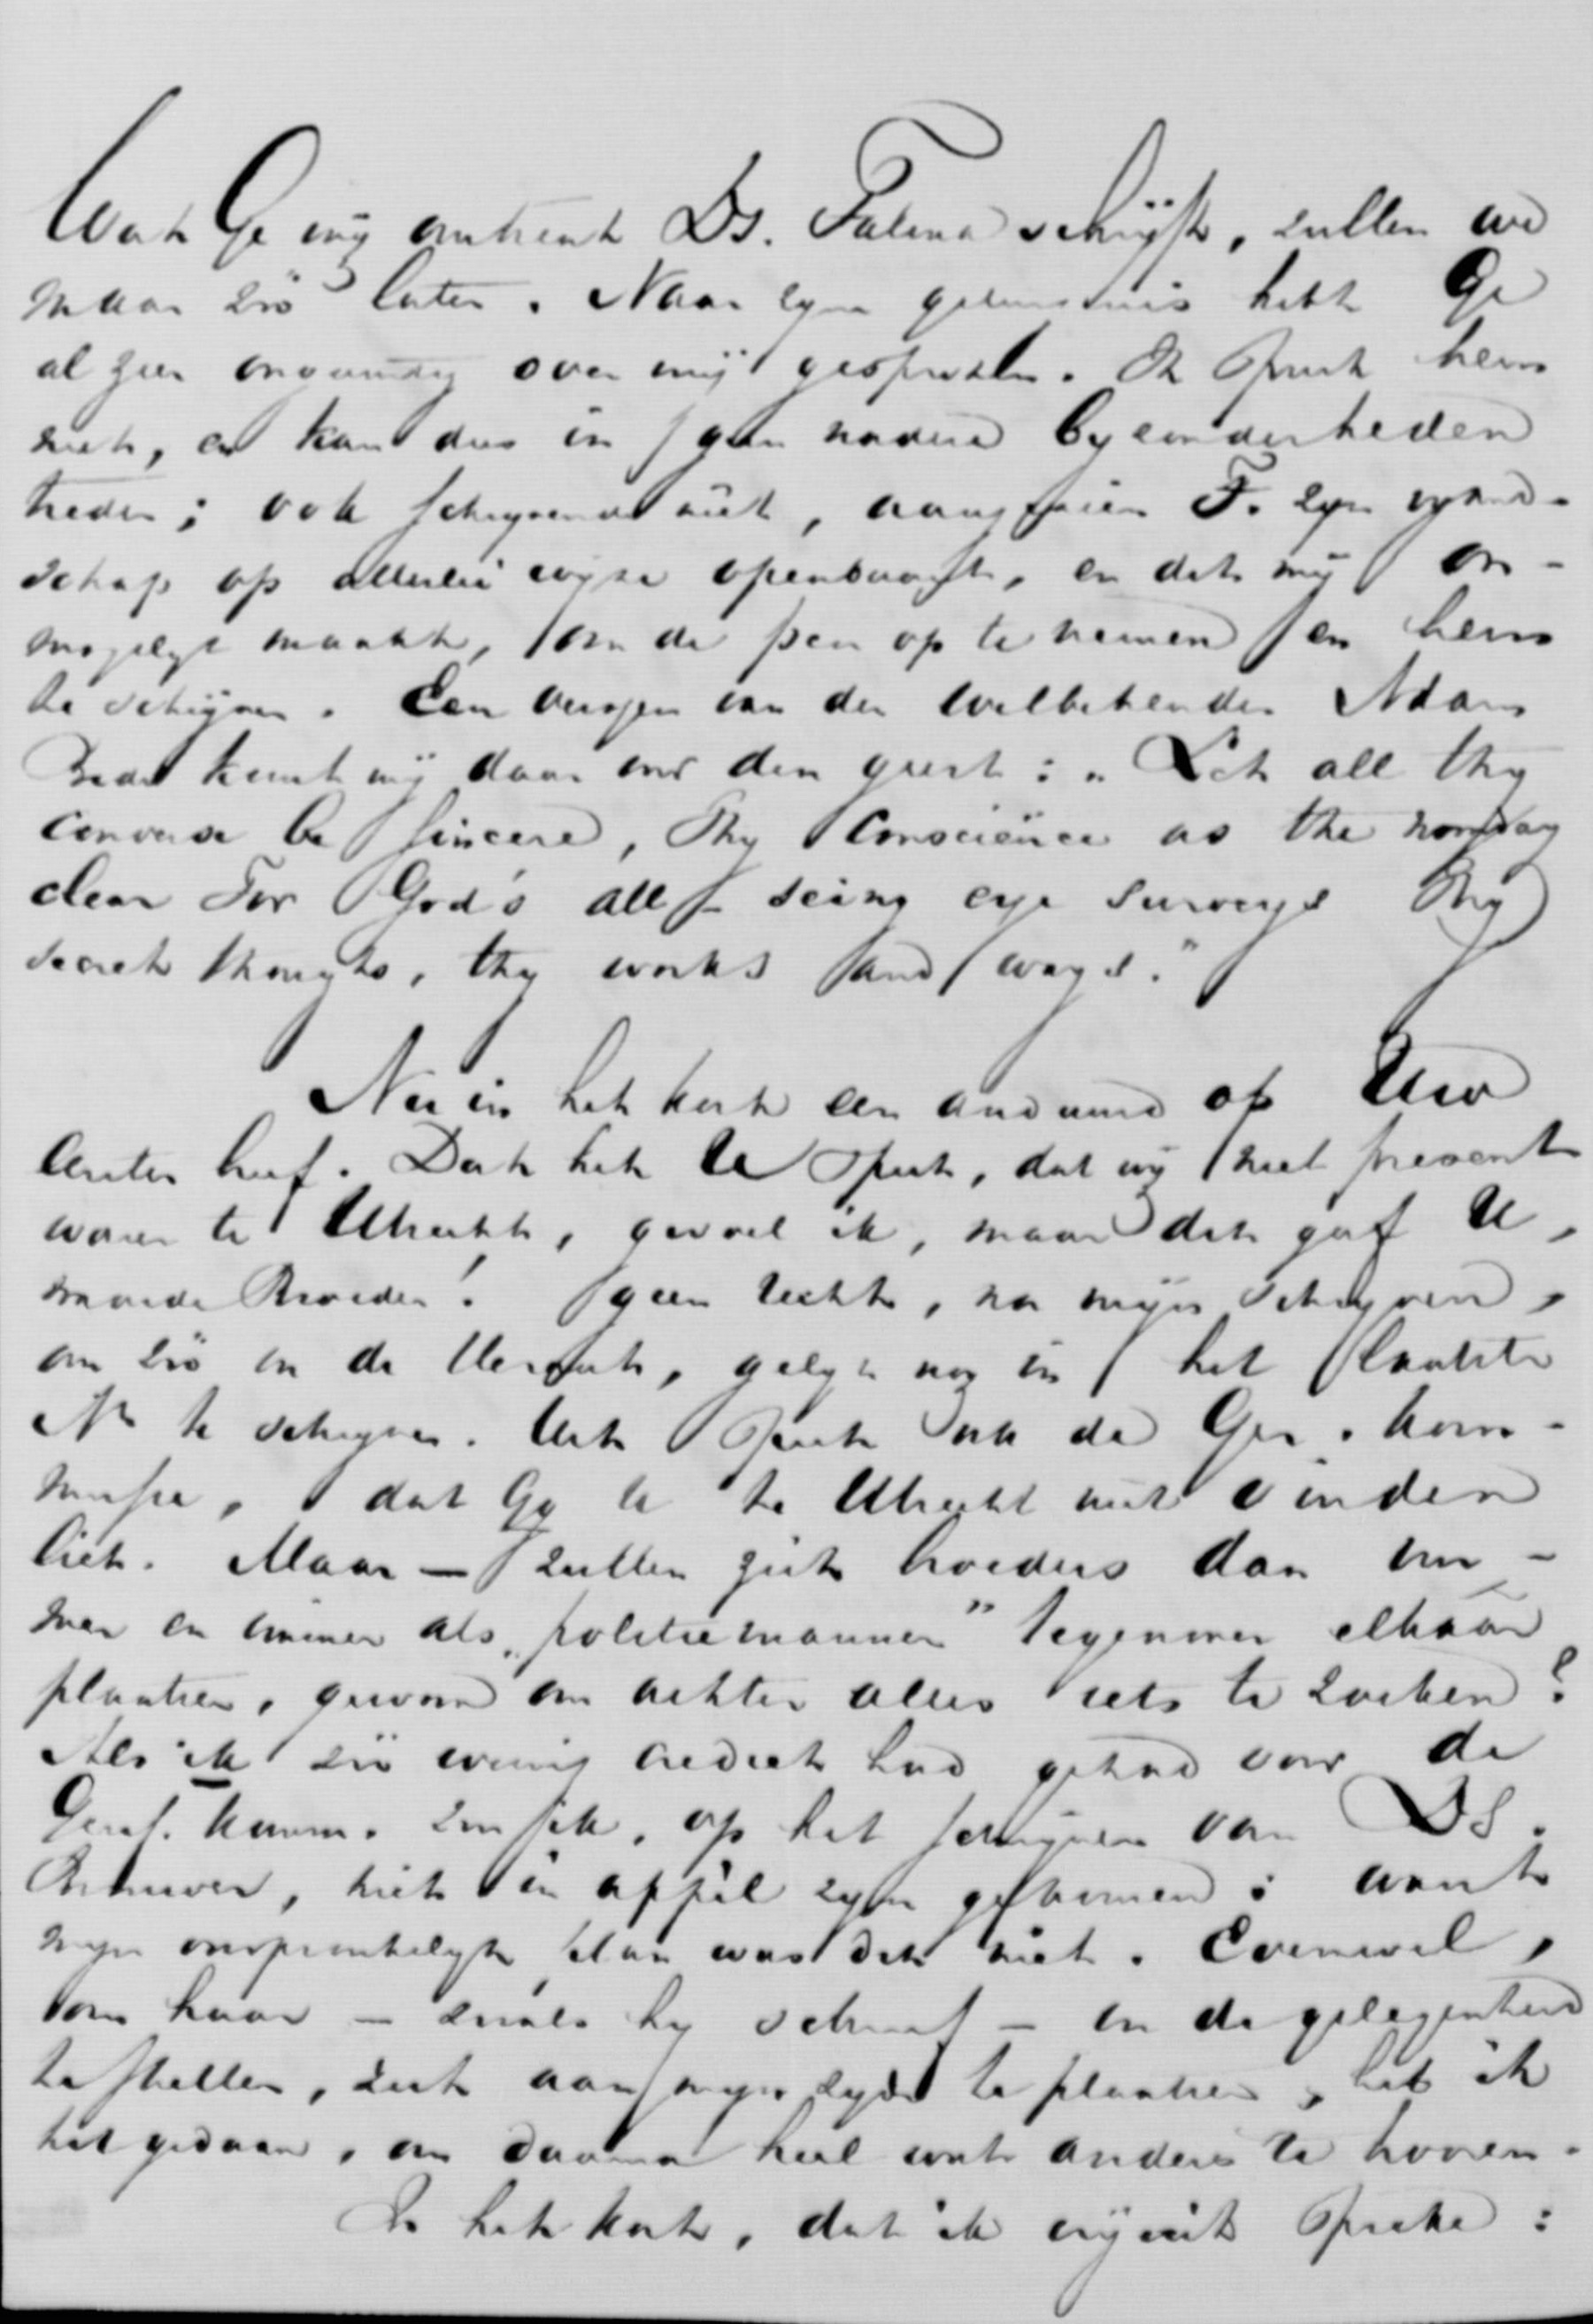 Wat Ge mij omtrent Ds. Fatma schrijft, zullen we
maar zoo laten. Naar zyn getuigenis hebt Ge
al zeer ongunstig over mij gesproken. Ik spreek hem
niet, en kan dus in geen nadere byzonderheden
treden; ook schryvende niet, aangezien F. zyn vyand-
schap op allerlei wyze openbaart, en dit mij on-
mogelyk maakt, om de pen op te nemen en hem
te schryven. Een versje van den welbekenden Adam
Bede komt mij daar voor den geest: "Let all thy
converse be sincere, Thy conscience as the noonday
clear For God's all-seeing eye surveys Thy
secret thougts, thy works and ways."
Nu in het kort een andwoord op Uw
brief. Dat het U speet, dat wy niet present
waren te Utrecht, gevoel ik, maar dit gaf U,
waarde Broeder! geen recht, na mijn schryven,
om zoo in de Bazuin, gelyk nog in het laatste
No te schryven. Het speet ook de Gen. kom-
missie, dat Gy U te Utrecht niet vinden
liet. Maar — zullen zich broeders dan im-
mer en immer als "politiemannen" tegenover elkaar
plaatsen, gewoon om achter alles iets te zoeken?
Als ik zoo weinig crediet had gehad voor de
Geref. komm. zou ik, op het schrijven van Ds.
Brouwer, niet in appèl zyn gekomen; want
myn oorspronkelyk plan was dit niet. Evenwel,
om haar — zooals hy schreef — in de gelegenheid
te stellen, zich aan myn zyde te plaatsen, heb ik
het gedaan, om daarna heel wat anders te hooren.
In het kort, dat ik vrijuit spreke: